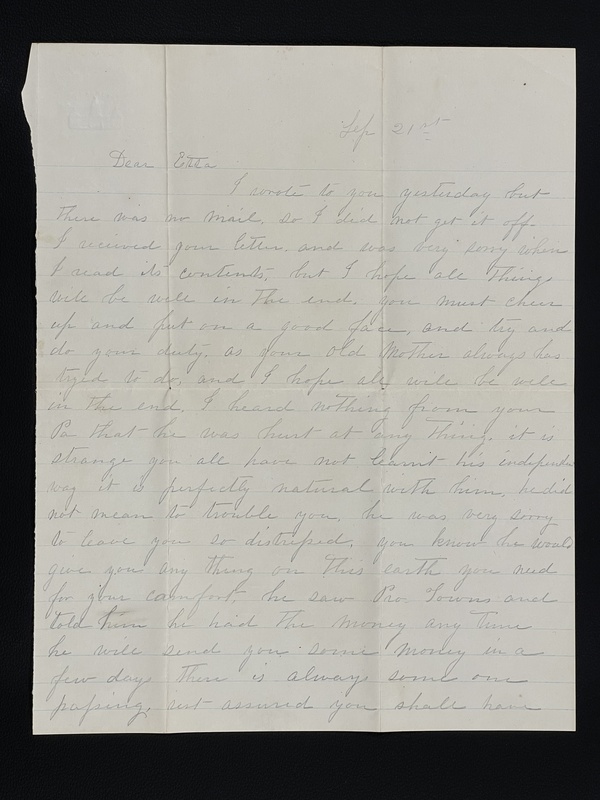 Sep 21st
Dear Etta
I wrote to you yesterday but
there was no mail, so I did not get it off.
I received your letter, and was very sorry when
I read its contents, but I hope all things
will be well in the end, you must cheer
up and put on a good face, and try and
do your duty, as your old Mother always has
tryed to do, and I hope all will be well
in the end, I heard nothing from your
Pa that he was hurt at any thing, it is
strange you all have not learnt his independent
way it is perfectly natural with him, he did
not mean to trouble you, he was very sorry
to leave you so distressed, you know he would
give you any thing on this earth you need
for your comfort, he saw Pro. Towns and
told him he had the money any time
he will send you some money in a
few days there is always some one
passing, rest assured you shall have